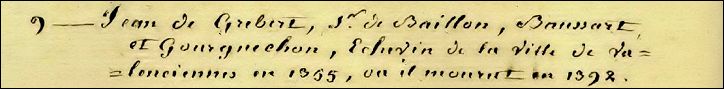 9 — Jean de Grebert, Sr. de Baillon, Baussart,
et Gourguechon, Echevin de la ville de Va=
=lenciennes en 1355, ou il mourut en 1392.